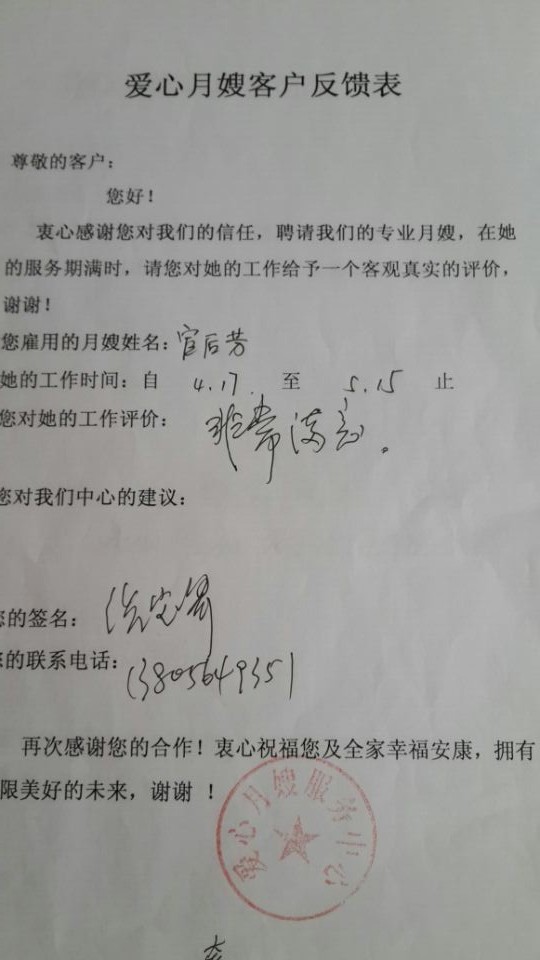 爱心月嫂客户反馈表
尊敬的客户：
您好！
衷心感谢您对我们的信任，聘请我们的专业月嫂，在她
的服务期满时，请您对她的工作给予一个客观真实的评价，
谢谢！
您雇用的月嫂姓名：官后芳
她的工作时间：自 4.17. 至 5.15 止
您对她的工作评价：非常满意。
您对我们中心的建议：
您的签名：
您的联系电话：13805649351
再次感谢您的合作！衷心祝福您及全家幸福安康，拥有
限美好的未来，谢谢！
爱心月嫂服务中心